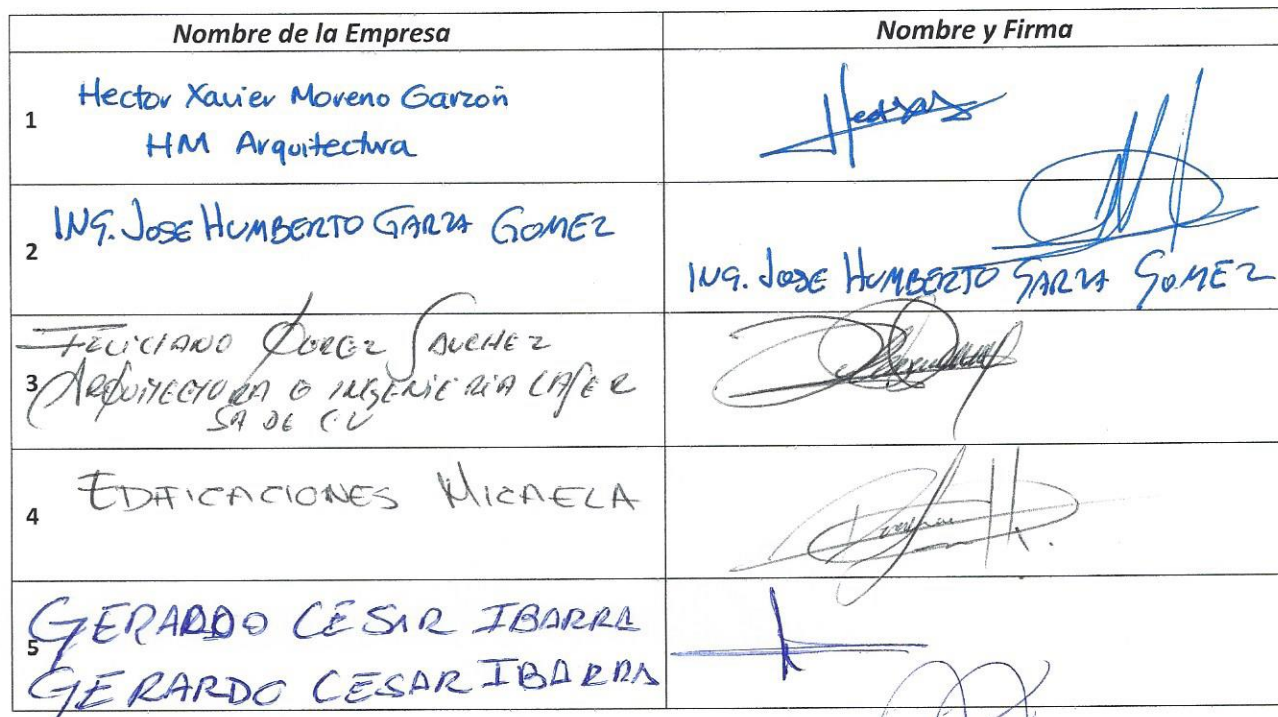 Nombre de la Empresa
Nombre y Firma
1
Hector Xavier Moreno Garzón
HM Arquitectura
2
ING. JOSE HUMBERTO GARZA GOMEZ
ING. JOSE HUMBERTO GARZA GOMEZ
3
FELICIANO PEREZ SANCHEZ
ARQUITECTURA E INGENIERIA CAFER
SA DE CV
4
EDIFICACIONES MICAELA
5
GERARDO CESAR IBARRA
GERARDO CESAR IBARRA